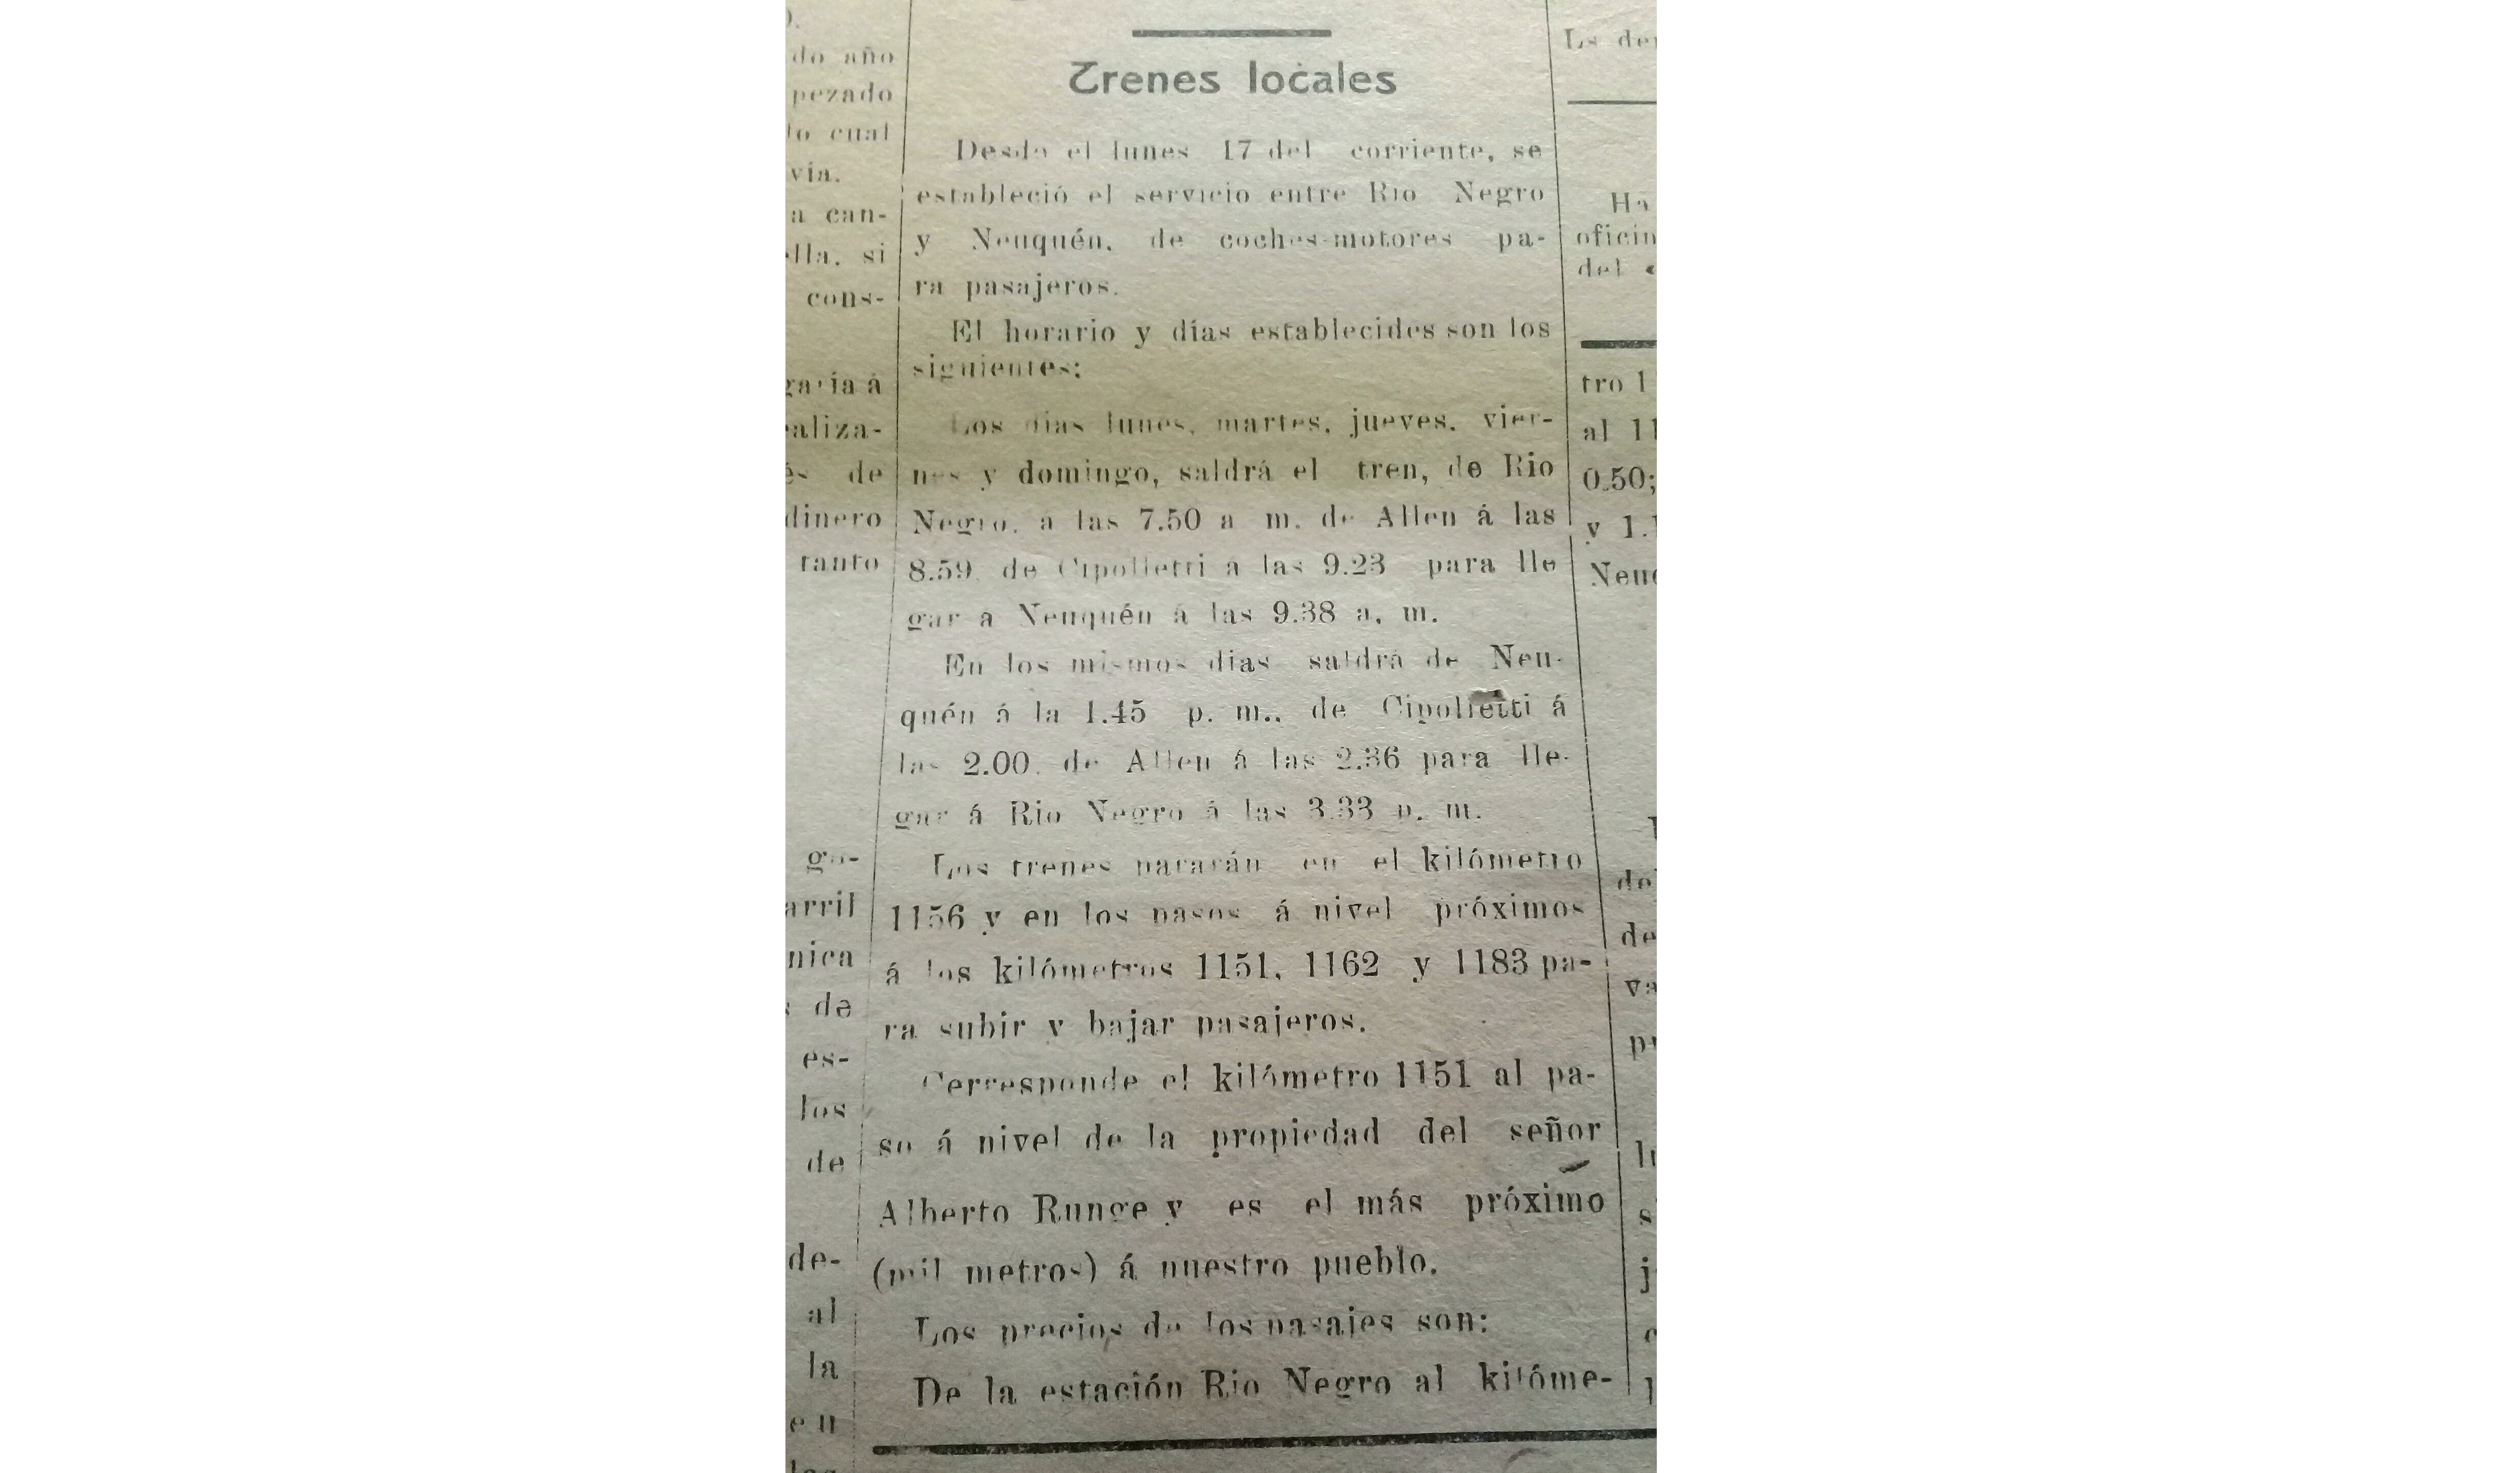 ).
do año
pezado
lo cual
via.
a can-
lla, si
cons-
garía á
ealiza-
de
dinero
tanto
arril
nica
de
es-
los
de
de-
al
la
en
Trenes locales
Desde el lunes 17 del corriente, se
estableció el servicio entre Rio Negro
y Neuquén, de coches-motores pa-
ra pasajeros.
El horario y días establecides son los
siguientes:
Los dias lunes, martes, jueves, vier-
nes y domingo, saldrá el tren, de Rio
Negro, a las 7.50 a m. de Allen á las
8.59, de Cipolletti a las 9.23 para lle
gar a Neuquén á las 9.38 a, m.
En los mismos dias saldrá de Neu-
quén á la 1.45 p. m., de Cipolletti á
las 2.00, de Allen á las 2.36 para lle-
gar á Rio Negro á las 3.33 p. m.
Los trenes pararán en el kilómetro
1156 y en los pasos á nivel próximos
á los kilómetros 1151, 1162 y 1183 pa-
ra subir y bajar pasajeros.
Cerresponde el kilómetro 1151 al pa-
so á nivel de la propiedad del señor
Alberto Runge y es el más próximo
(mil metros) á nuestro pueblo.
Los precios de los pasajes son:
De la estación Rio Negro al kilóme-
La der
Ha
oficin
del «
tro 1
al 11
0.50;
y 1.
Neuq
de
va